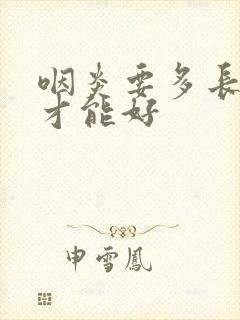 咽炎要多長
才能好
申雪鳳